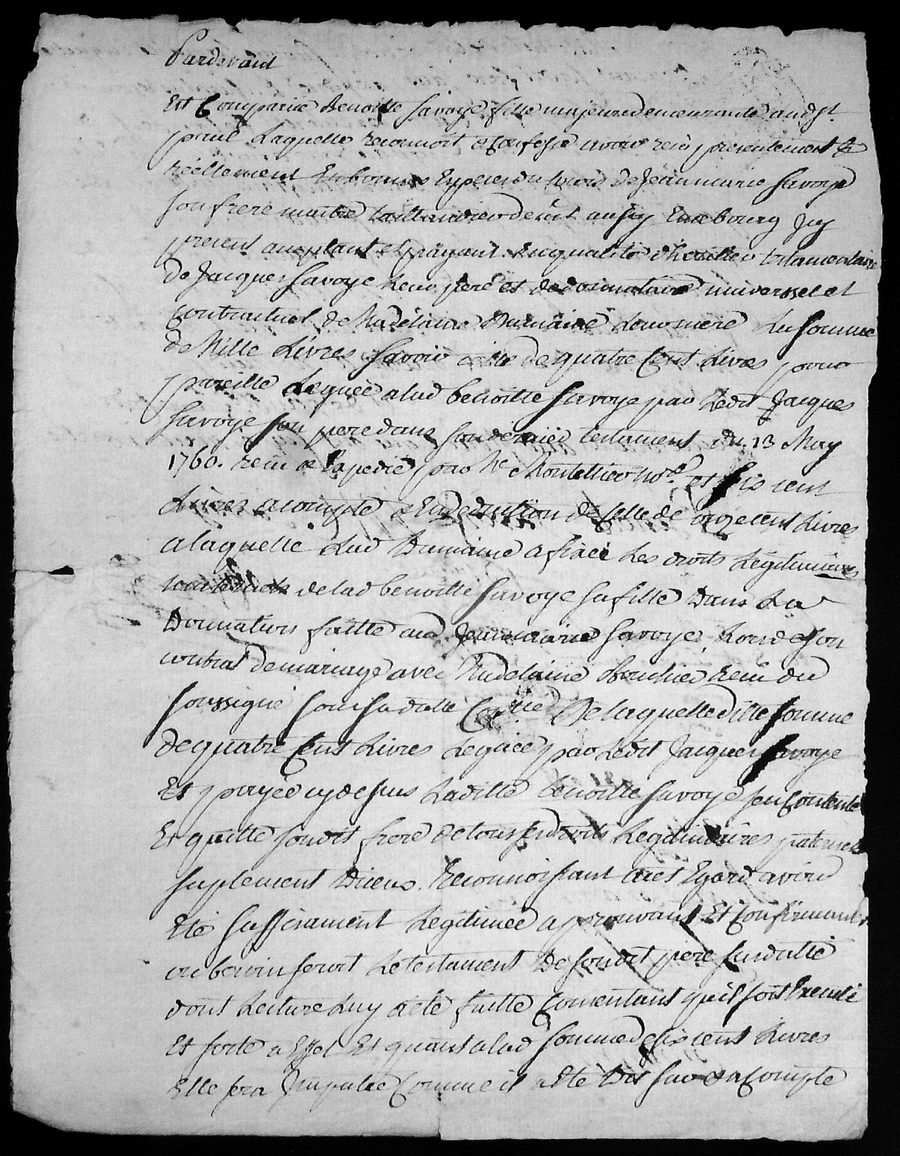 Pardevant
Est Comparüe Benoitte Savoye fille majeure demeurante aud st
paul Laquelle reconnoit & confesse avoir reçü presentement &
réellement En bonnes Especes du Cours de Jean marie Savoye
son frere maitre taillandier de st au bourg Jcy
present acceptant et payant En qualité d'heritier testamentaire
de Jacques Savoye Leur pere et de donnataire universsel et
Contractuel de Madelaine Dumaine Leur mere La Somme
de Mille Livres Savoir celle de quatre Cent Livres pour
pareille Leguée a lad benoitte Savoye par Ledit Jacques
Savoye son pere dans son dernier testament du 13 May
1760. recü & Expedié par Me not.re et six cent
Livres a compte & En deduction de Celle de onze cent Livres
a laquelle Lad Dumaine a fixée Les droits Légitimaires
maternels de lad benoitte Savoye sa fille Dans La
Donnation faitte aud Jean marie Savoye Lors de son
contrat de mariage avec Madelaine recü du
soussigné sous sa datte De laquelle ditte Somme
de quatre Cent Livres Leguée par Ledit Jacques Savoye
Et payée cy dessus Laditte benoitte Savoye sen Contente
Et quitte sondit frere de tous ses droits Legitimaires paternels
suplement Diceux Reconnoissant a cet Egard avoir
Eté suffisament Legitimée aprouvant Et Confirmant
ou besoin seroit Le testament De sondit pere susdatté
dont Lecture Luy a été faitte Consentant qu'il soit Executé
Et sorte a Effet Et quant a lad somme de six cent Livres
Elle sera Jmputée Comme il a été dit sur & a Compte